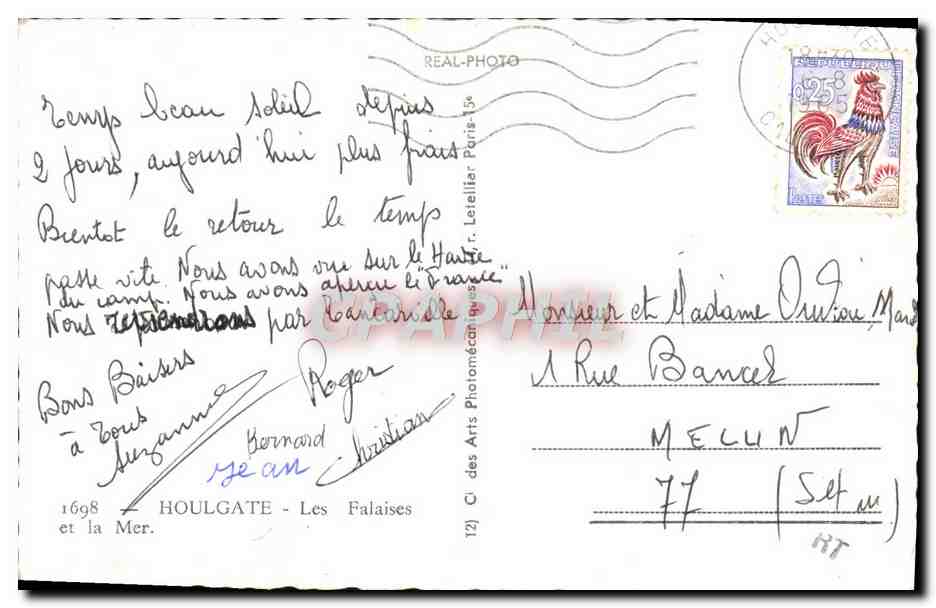 REAL-PHOTO
Temps beau soleil depuis
2 jours, aujourd'hui plus frais
Bientot le retour le temps
passe vite. Nous avons vue sur le Havre
du camp. Nous avons aperçu le "France"
Nous reviendrons par Tancarville
Bons Baisers
à tous
Suzanne
Roger
Bernard
Jean
Christian
1698 HOULGATE - Les Falaises
et la Mer.
12) des Arts Photomécaniques r. Letellier Paris-15e
HOULGATE
18H30
8
REPUBLIQUE FRANÇAISE
0,25
POSTES
CPAPHIL
Monsieur et Madame
1 Rue Bancel
MELUN
77 (Set M)